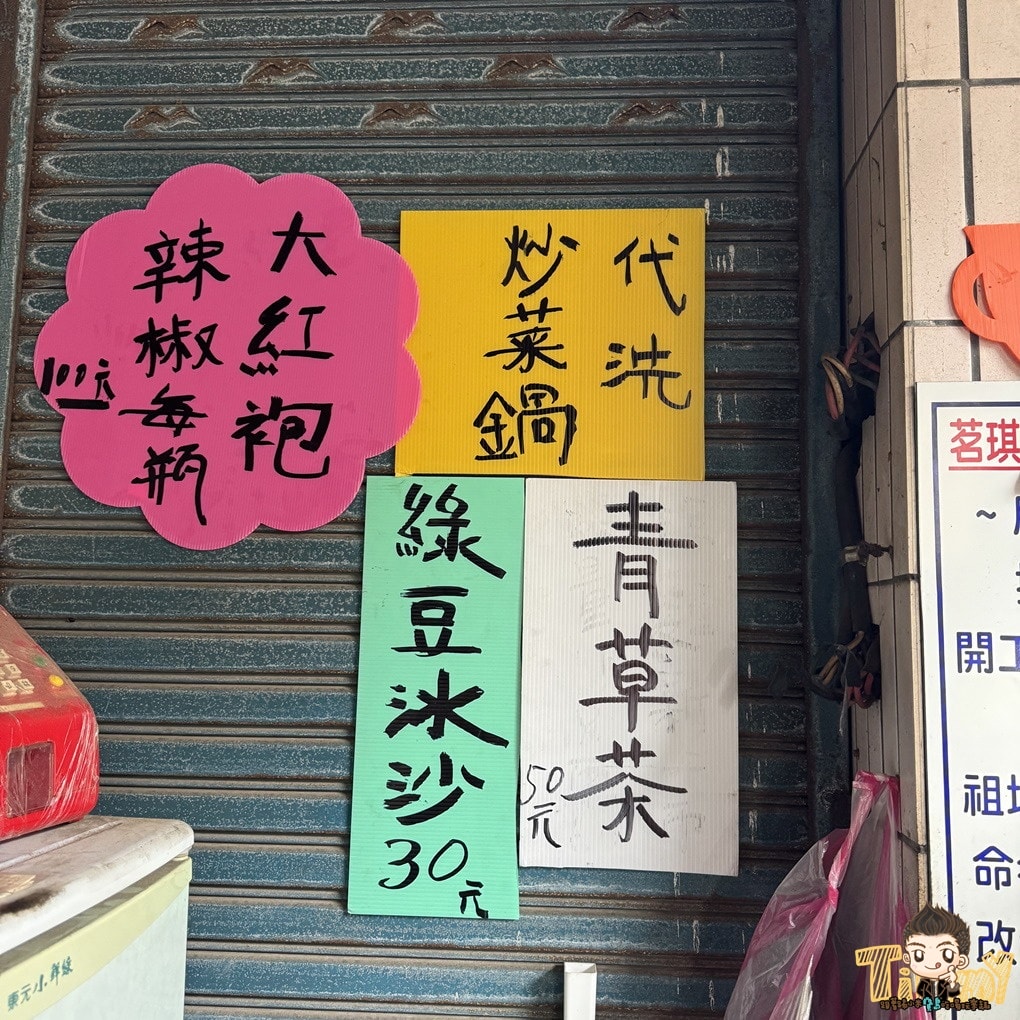 大紅袍
辣椒每瓶
100元
代洗
炒菜鍋
綠豆冰沙30元
青草茶
50元
茗琪
~
開工
祖
命
改
東元小鮮綠
Tiffany